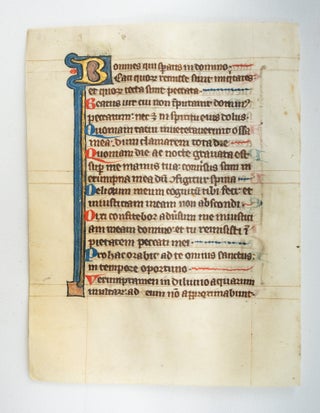 omnes qui speratis in domino.
Beati quorum remisse sunt iniquitates
et quorum tecta sunt peccata.
Beatus uir cui non imputauit dominus
peccatum: nec est in spiritu eius dolus.
Quoniam tacui inueterauerunt ossa
mea. dum clamarem tota die.
Quoniam die ac nocte grauata est
super me manus tua: conuersus sum in
erumpna mea dum configitur spina
Delictum meum cognitum tibi feci: et
iniusticiam meam non abscondi.
Dixi confitebor aduersum me iniustici
am meam domino: et tu remisisti im
pietatem peccati mei.
Pro hac orabit ad te omnis sanctus:
in tempore oportuno.
Verumptamen in diluuio aquarum
multarum: ad eum non approximabunt.